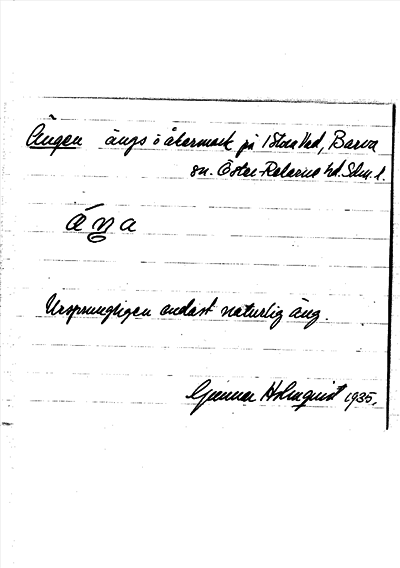 Ängen ängs o åkermark på Stora Vad, Barva
sn. Öster-Rekarne hd. Sdm. l.
Ursprungligen endast naturlig äng.
Gunnar Holmquist 1935.